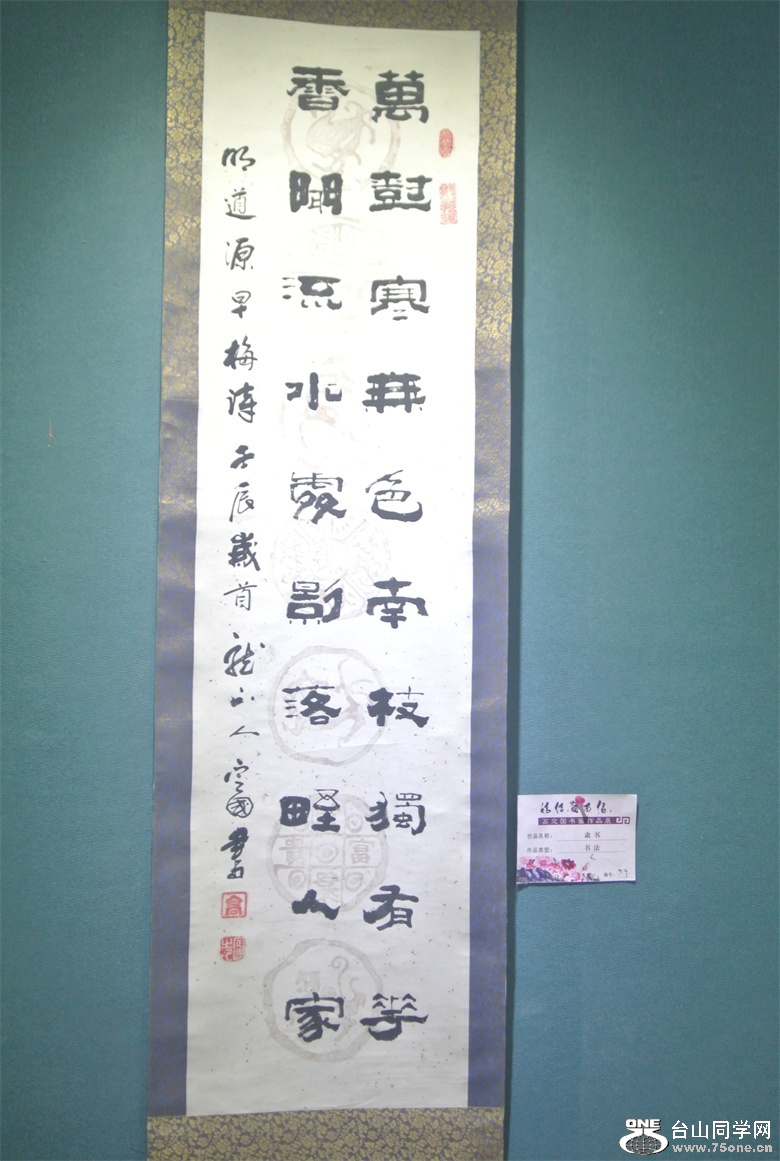 萬尌寒無色南枝獨有花
香聞流水處影落野人家
明道源早梅詩壬辰歲首龍山人定國書
富貴
作品名称： 隶书
作品类型： 书法
编号：
ONE
台山同学网
www.75one.cn